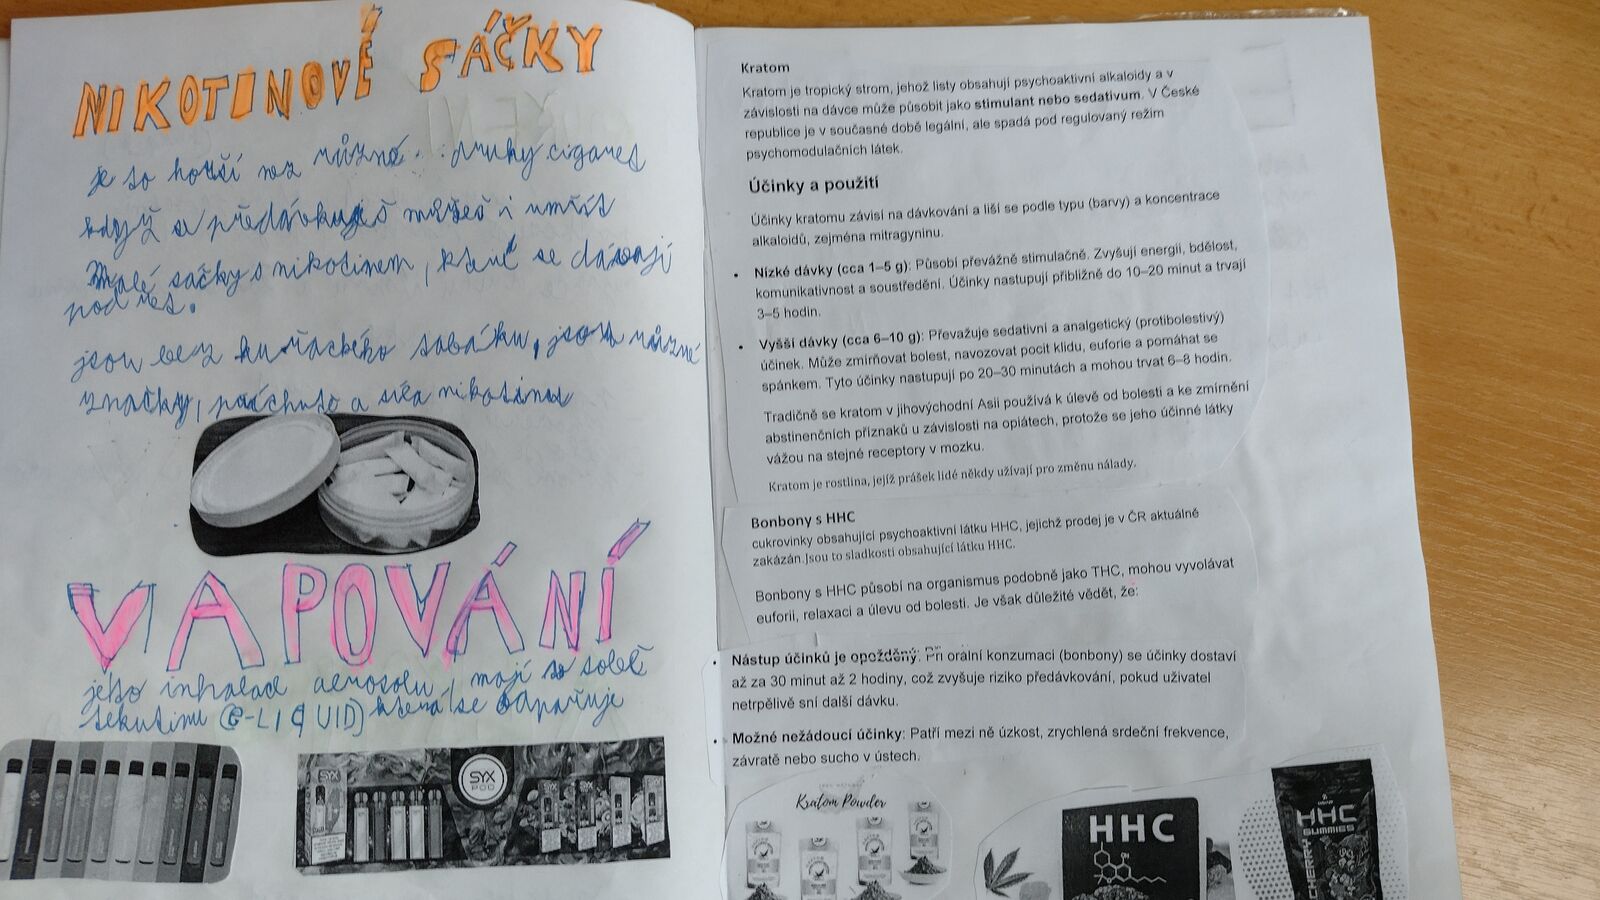 NIKOTINOVÉ SÁČKY
je to horší než různé druhy cigaret
když se předávkuješ můžeš i umřít
Malé sáčky s nikotinem, které se dávají
pod ret.
jsou bez kuřáckého tabáku, jsou různé
značky, příchutě a síla nikotinu
VAPOVÁNÍ
jeho inhalace aerosolu, mají v sobě
tekutinu (E-LIQUID) která se odpařuje
SYX
POD
Kratom
Kratom je tropický strom, jehož listy obsahují psychoaktivní alkaloidy a v
závislosti na dávce může působit jako stimulant nebo sedativum. V České
republice je v současné době legální, ale spadá pod regulovaný režim
psychomodulačních látek.
Účinky a použití
Účinky kratomu závisí na dávkování a liší se podle typu (barvy) a koncentrace
alkaloidů, zejména mitragyninu.
• Nízké dávky (cca 1–5 g): Působí převážně stimulačně. Zvyšují energii, bdělost,
komunikativnost a soustředění. Účinky nastupují přibližně do 10–20 minut a trvají
3–5 hodin.
• Vyšší dávky (cca 6–10 g): Převažuje sedativní a analgetický (protibolestivý)
účinek. Může zmírňovat bolest, navozovat pocit klidu, euforie a pomáhat se
spánkem. Tyto účinky nastupují po 20–30 minutách a mohou trvat 6–8 hodin.
Tradičně se kratom v jihovýchodní Asii používá k úlevě od bolesti a ke zmírnění
abstinenčních příznaků u závislosti na opiátech, protože se jeho účinné látky
vážou na stejné receptory v mozku.
Kratom je rostlina, jejíž prášek lidé někdy užívají pro změnu nálady.
Bonbony s HHC
cukrovinky obsahující psychoaktivní látku HHC, jejichž prodej je v ČR aktuálně
zakázán.Jsou to sladkosti obsahující látku HHC.
Bonbony s HHC působí na organismus podobně jako THC, mohou vyvolávat
euforii, relaxaci a úlevu od bolesti. Je však důležité vědět, že:
• Nástup účinků je opožděný: Při orální konzumaci (bonbony) se účinky dostaví
až za 30 minut až 2 hodiny, což zvyšuje riziko předávkování, pokud uživatel
netrpělivě sní další dávku.
• Možné nežádoucí účinky: Patří mezi ně úzkost, zrychlená srdeční frekvence,
závratě nebo sucho v ústech.
Kratom Powder
HHC
HHC
GUMMIES
CHERRY